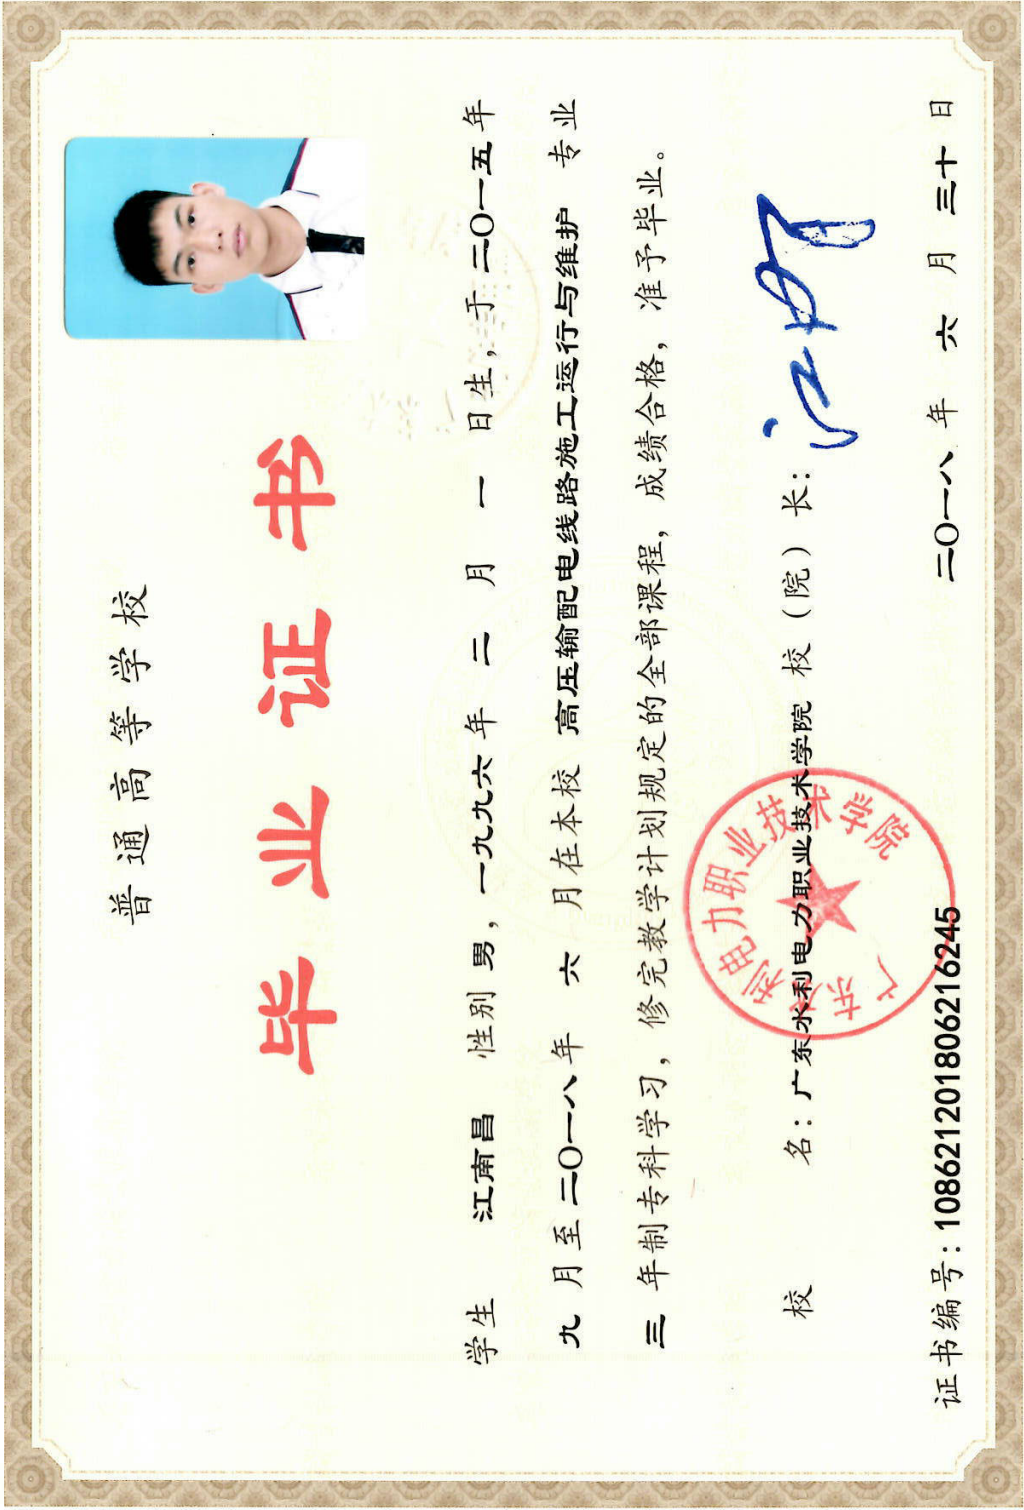 普通高等学校
毕业证书
学生 江南昌 性别 男，一九九六年 二 月 一 日生，于二〇一五年
九 月至二〇一八年 六 月在本校 高压输配电线路施工运行与维护 专业
三 年制专科学习，修完教学计划规定的全部课程，成绩合格，准予毕业。
校 名：广东水利电力职业技术学院 校（院）长：
广东水利电力职业技术学院
二〇一八年 六 月 三十 日
证书编号：108621201806216245